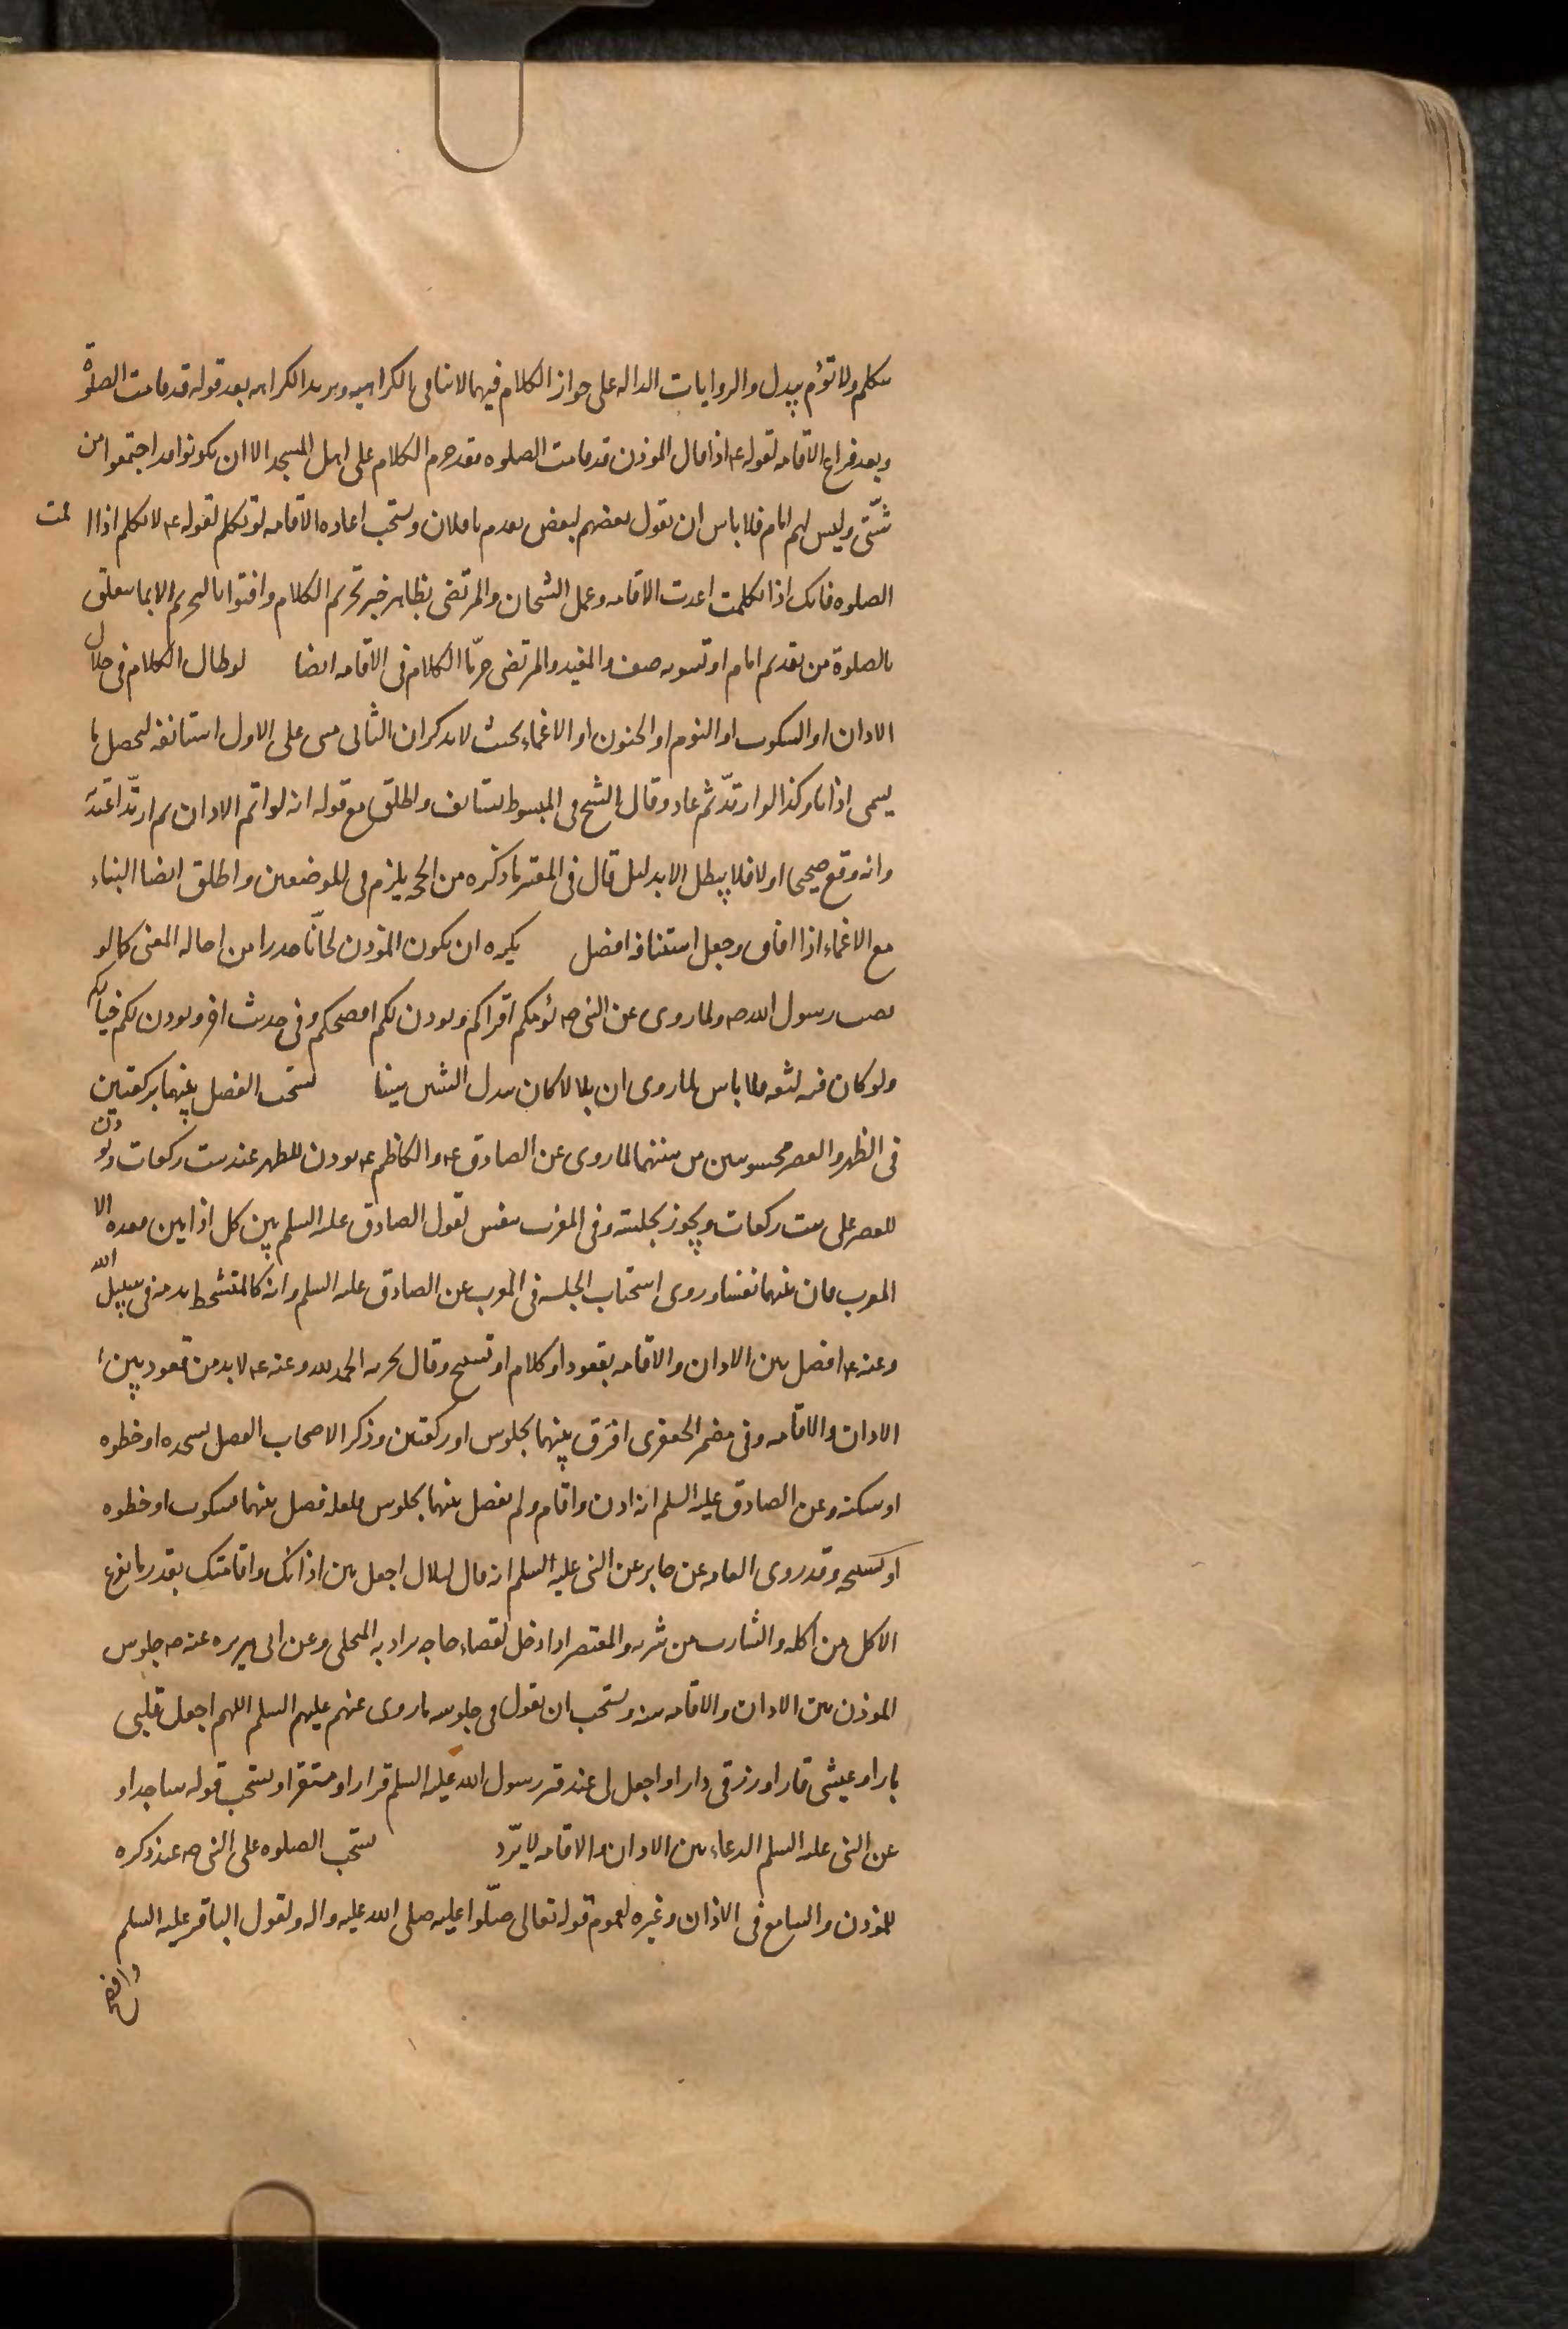 تتكلم ولا تؤم بيدك والروايات الداله على جواز الكلام فيهما لا تنافى الكراهيه ويزيد الكراهه بعد قوله قد قامت الصلوة
وبعد فراغ الاقامه لقوله ع اذا قال الموذن قد قامت الصلوه فقد حرم الكلام على اهل المسجد الا ان يكونوا قد اجتمعوا من
شتّى وليس لهم امام فلا باس ان يقول بعضهم لبعض تقدم يا فلان ويستحب اعاده الاقامه لو تكلم لقوله ع لا تتكلم اذا اقمت
الصلوه فانك اذا تكلمت اعدت الاقامه وعمل الشيخان والمرتضى بظاهر خبر تحريم الكلام وافتوا بالتحريم الا بما يتعلق
بالصلوة من تقديم امام او تسويه صف والمفيد والمرتضى حرّما الكلام فى الاقامه ايضا لو طال الكلام فى خلال
الاذان او السكوت او النوم او الجنون او الاغماء بحيث لا يذكر ان الثانى مبنى على الاول استانفه ليحصل ما
يسمى اذانا وكذا لو ارتدّ ثم عاد وقال الشيخ فى المبسوط يستانف واطلق مع قوله انه لو اتم الاذان ثم ارتدّ اعتد به
وانه وقع صحيحا اولا فلا يبطل الا بدليل قال فى المعتبر ما ذكره من الحجه يلزم فى الموضعين واطلق ايضا البناء
مع الاغماء اذا افاق وجعل استئنافه افضل يكره ان يكون الموذن لحّانا حذرا من احاله المعنى كما لو
نصب رسول الله ص ولما روى عن النبى ص يؤمكم اقراكم ويوذن لكم افصحكم وفى حديث اخر ويوذن لكم خياركم
ولو كان فيه لثغه فلا باس لما روى ان بلالا كان يبدل الشين سينا يستحب الفصل بينهما بركعتين
فى الظهر والعصر محسوبتين من سنتهما لما روى عن الصادق ع والكاظم ع يوذن للظهر عند ست ركعات ويوذن
للعصر على ست ركعات ويجوز بجلسه وفى المغرب بنفس لقول الصادق عليه السلم بين كل اذانين قعده الا
المغرب فان بينهما نفسا وروى استحباب الجلسه فى المغرب عن الصادق عليه السلم وانه كالمتشحط بدمه فى سبيل الله
وعنه ع افصل بين الاذان والاقامه بقعود او كلام او تسبيح وقال يجزيه الحمد لله وعنه ع لا بد من قعود بين
الاذان والاقامه وفى مضمر الجعفرى افرق بينهما بجلوس او ركعتين وذكر الاصحاب الفصل بسجده او خطوه
او سكته وعن الصادق عليه السلم انه اذن واقام ولم يفصل بينهما بجلوس فلعله فصل بينهما بسكوت او خطوه
او تسبيحه وقد روى العامه عن جابر عن النبى عليه السلم انه قال لبلال اجعل بين اذانك واقامتك بقدر ما يفرغ
الاكل من اكله والشارب من شربه والمعتصر اذا دخل لقضاء حاجه يراد به المتخلى وعن ابى هريره عنه ص جلوس
الموذن بين الاذان والاقامه سنه ويستحب ان يقول فى جلوسه ما روى عنهم عليهم السلم اللهم اجعل قلبى
بارا وعيشى قارا ورزقى دارا واجعل لى عند قبر رسول الله عليه السلم قرارا ومستقرا ويستحب قوله ساجدا و
عن النبى عليه السلم الدعاء بين الاذان والاقامه لا يرّد يستحب الصلوه على النبى ص عند ذكره
للموذن والسامع فى الاذان وغيره لعموم قوله تعالى صلّوا عليه صلى الله عليه واله ولقول الباقر عليه السلم
وافصح